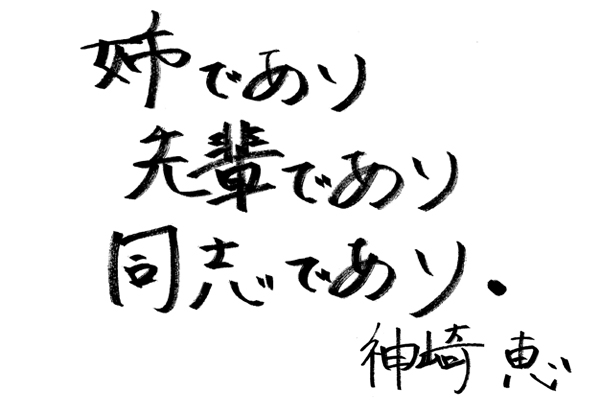 姉であり
先輩であり
同志であり.
神崎恵